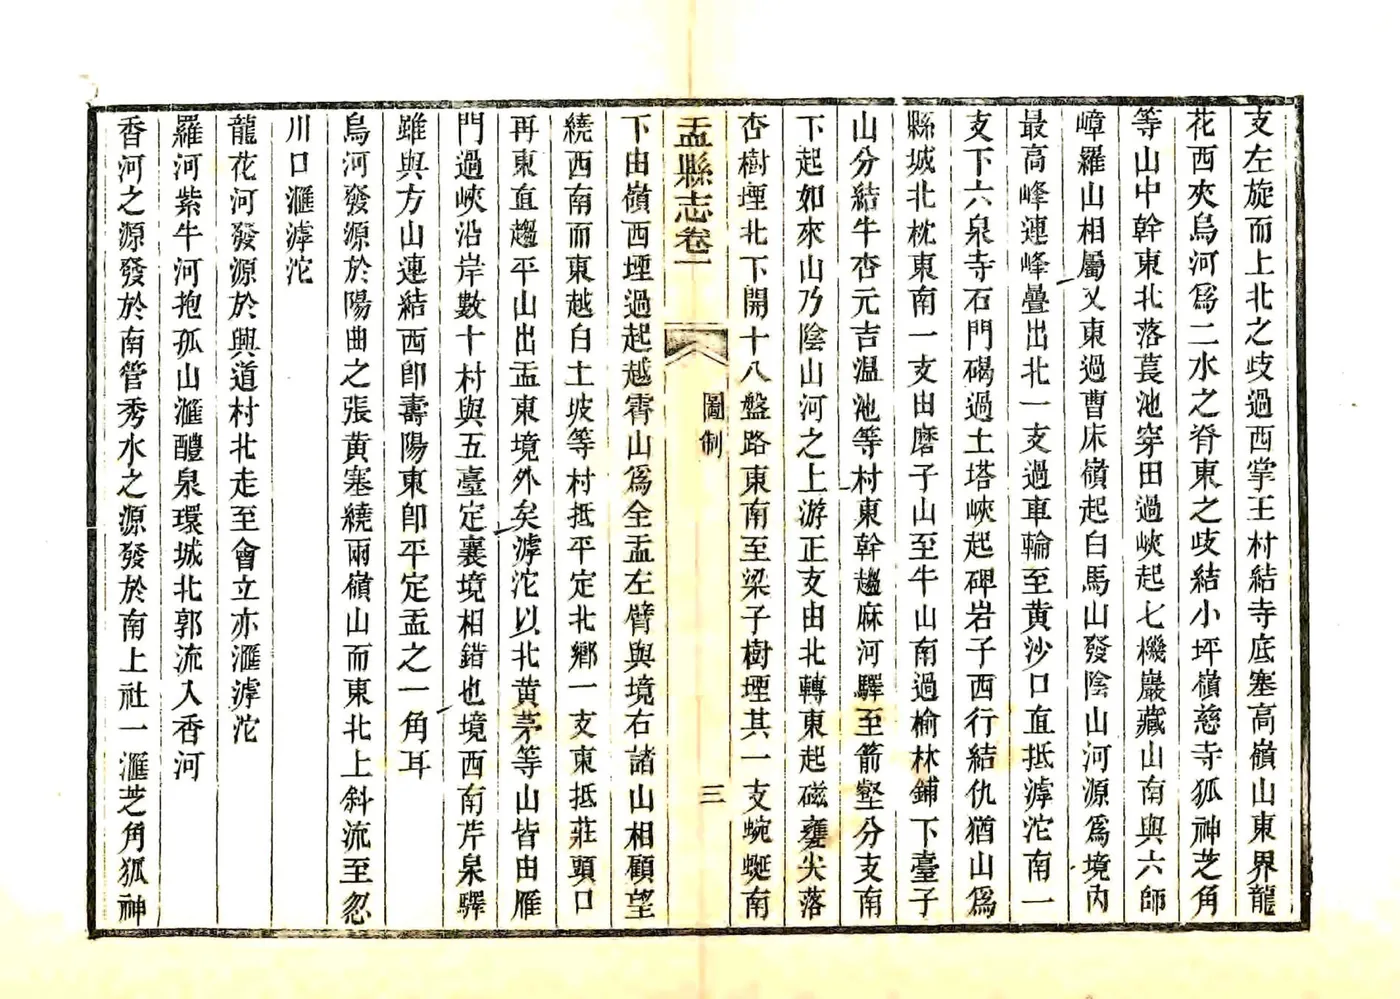 支左旋而上北之歧過西掌王村結寺底塞高嶺山東界龍
花西夾烏河爲二水之脊東之歧結小坪嶺慈寺狐神芝角
等山中幹東北落萇池穿田過峽起七機巖藏山南與六師
嶂羅山相屬又東過曹床嶺起白馬山發陰山河源爲境內
最高峰連峰疊出北一支過車輪至黄沙口直抵滹沱南一
支下六泉寺石門碣過土塔峽起碑岩子西行結仇猶山爲
縣城北枕東南一支由磨子山至牛山南過榆林鋪下臺子
山分結牛杏元吉温池等村東幹趨麻河驛至箭壑分支南
下起如來山乃陰山河之上游正支由北轉東起磁甕尖落
杏樹堙北下開十八盤路東南至梁子樹堙其一支蜿蜒南
盂縣志卷一
圖制
三
下由嶺西堙過起越霄山爲全盂左臂與境右諸山相顧望
繞西南而東越白土坡等村抵平定北鄉一支東抵莊頭口
再東直趨平山出盂東境外矣滹沱以北黄茅等山皆由雁
門過峽沿岸數十村與五臺定襄境相錯也境西南芹泉驛
雖與方山連結西卽壽陽東卽平定盂之一角耳
烏河發源於陽曲之張黄塞繞兩嶺山而東北上斜流至忽
川口滙滹沱
龍花河發源於興道村北走至會立亦滙滹沱
羅河紫牛河抱孤山滙醴泉環城北郭流入香河
香河之源發於南管秀水之源發於南上社一滙芝角狐神